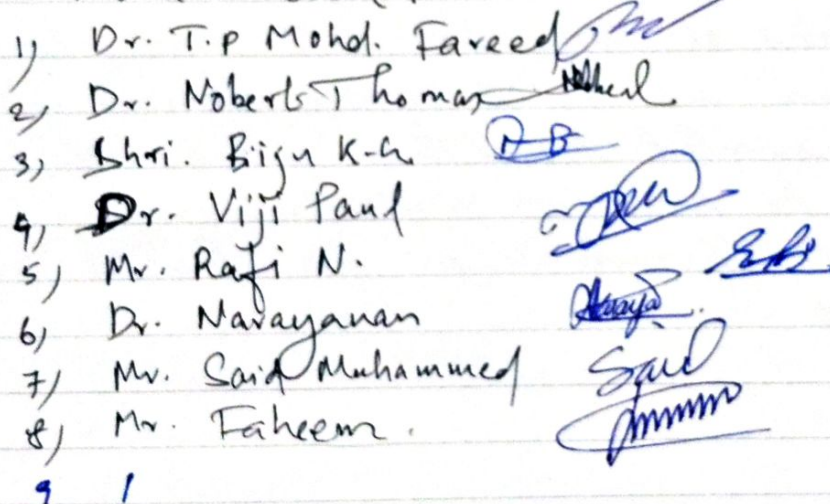 1) Dr. T.P Mohd. Fareed
2) Dr. Nobert Thomas
3) Shri. Biju K.G
4) Dr. Viji Paul
5) Mr. Rafi N.
6) Dr. Narayanan
7) Mr. Said Muhammed Said
8) Mr. Faheem.
9